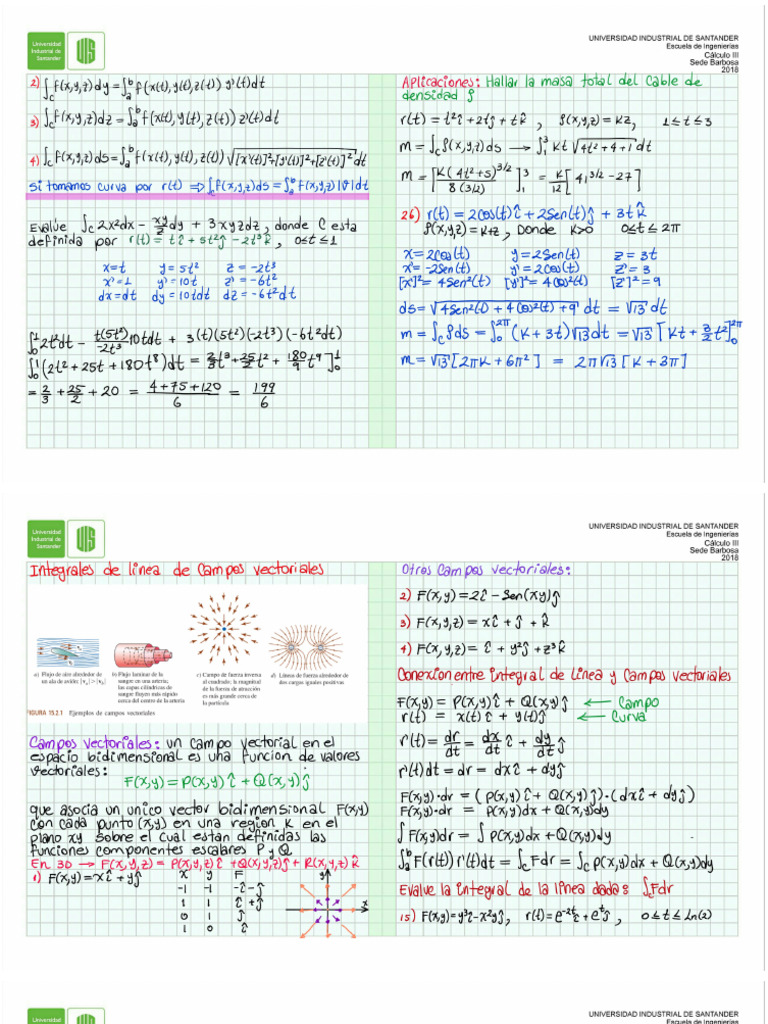 Universidad
Industrial de
Santander
UIS
UNIVERSIDAD INDUSTRIAL DE SANTANDER
Escuela de Ingenierías
Cálculo III
Sede Barbosa
2018
2) ∫_C f(x,y,z)dy = ∫_a^b f(x(t),y(t),z(t)) y'(t)dt
3) ∫_C f(x,y,z)dz = ∫_a^b f(x(t),y(t),z(t)) z'(t)dt
4) ∫_C f(x,y,z)ds = ∫_a^b f(x(t),y(t),z(t)) √([x'(t)]²+[y'(t)]²+[z'(t)]²) dt
Si tomamos curva por r(t) ⇒ ∫_C f(x,y,z)ds = ∫_a^b f(x,y,z)|r'|dt
Evalue ∫_C 2x²dx - xy/z dy + 3xyzdz, donde C esta
definida por r(t) = tî + 5t²ĵ - 2t³k̂, 0≤t≤1
x=t y=5t² z=-2t³
x'=1 y'=10t z'=-6t²
dx=dt dy=10tdt dz=-6t²dt
∫_0^1 2t²dt - t(5t²)/-2t³ 10tdt + 3(t)(5t²)(-2t³)(-6t²dt)
∫_0^1 (2t² + 25t + 180t⁸)dt = 2/3 t³ + 25/2 t² + 180/9 t⁹]_0^1
= 2/3 + 25/2 + 20 = (4+75+120)/6 = 199/6
Aplicaciones: Hallar la masa total del Cable de
densidad ρ
r(t) = t²î + 2tĵ + tk̂, ρ(x,y,z) = kz, 1≤t≤3
m = ∫_C ρ(x,y,z)ds → ∫_1^3 kt √(4t²+4+1) dt
m = [k(4t²+5)^(3/2) / 8(3/2)]_1^3 = k/12 [41^(3/2) - 27]
26) r(t) = 2Cos(t)î + 2Sen(t)ĵ + 3tk̂
ρ(x,y,z) = k+z, Donde k>0 0≤t≤2π
x=2Cos(t) y=2Sen(t) z=3t
x'=-2Sen(t) y'=2Cos(t) z'=3
[x']²=4Sen²(t) [y']²=4Cos²(t) [z']²=9
ds = √(4Sen²(t) + 4Cos²(t) + 9) dt = √13 dt
m = ∫_C ρds = ∫_0^2π (k+3t)√13 dt = √13 [kt + 3/2 t²]_0^2π
m = √13 [2πk + 6π²] = 2π√13 [k + 3π]
Universidad
Industrial de
Santander
UIS
UNIVERSIDAD INDUSTRIAL DE SANTANDER
Escuela de Ingenierías
Cálculo III
Sede Barbosa
2018
Integrales de linea de Campos vectoriales
a) Flujo de aire alrededor de
un ala de avión; |v_a|>|v_b|
b) Flujo laminar de la
sangre en una arteria;
las capas cilíndricas de
sangre fluyen más rápido
cerca del centro de la arteria
c) Campo de fuerza inversa
al cuadrado; la magnitud
de la fuerza de atracción
es más grande cerca de
la partícula
d) Líneas de fuerza alrededor de
dos cargas iguales positivas
FIGURA 15.2.1 Ejemplos de campos vectoriales
Campos vectoriales: un campo vectorial en el
espacio bidimensional es una funcion de valores
vectoriales:
F(x,y) = P(x,y)î + Q(x,y)ĵ
que asocia un unico vector bidimensional F(x,y)
con cada punto (x,y) en una region K en el
plano xy sobre el cual estan definidas las
funciones componentes escalares P y Q
En 3D → F(x,y,z) = P(x,y,z)î + Q(x,y,z)ĵ + R(x,y,z)k̂
1) F(x,y) = xî + yĵ
x y F
-1 -1 -î-ĵ
1 1 î+ĵ
0 1 ĵ
1 0 î
y
x
Otros Campos vectoriales:
2) F(x,y) = 2î - Sen(xy)ĵ
3) F(x,y,z) = xî + ĵ + k̂
4) F(x,y,z) = î + y²ĵ + z³k̂
Conexion entre integral de Linea y Campos vectoriales
F(x,y) = P(x,y)î + Q(x,y)ĵ ← Campo
r(t) = x(t)î + y(t)ĵ ← Curva
r'(t) = dr/dt = dx/dt î + dy/dt ĵ
r'(t)dt = dr = dxî + dyĵ
F(x,y)·dr = (P(x,y)î + Q(x,y)ĵ)·(dxî + dyĵ)
F(x,y)·dr = P(x,y)dx + Q(x,y)dy
∫F(x,y)dr = ∫P(x,y)dx + Q(x,y)dy
∫_a^b F(r(t)) r'(t)dt = ∫_C Fdr = ∫_C P(x,y)dx + Q(x,y)dy
Evalue la integral de la linea dada: ∫_C Fdr
15) F(x,y) = y³î - x²yĵ, r(t) = e^(-2t)î + e^tĵ, 0≤t≤Ln(2)
Universidad
UIS
UNIVERSIDAD INDUSTRIAL DE SANTANDER
Escuela de Ingenierías